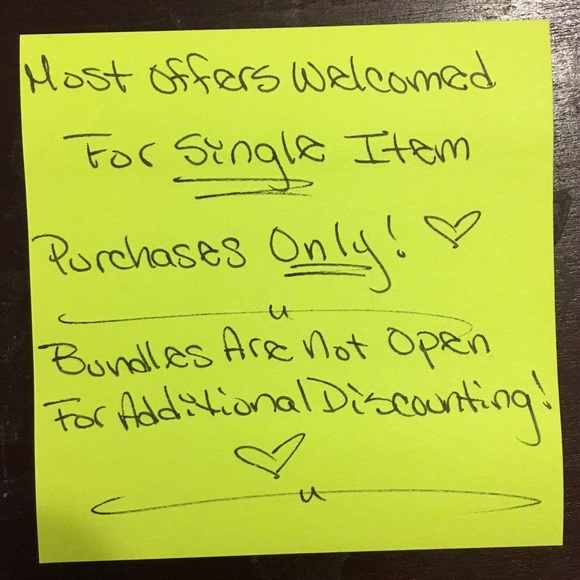 Most Offers Welcomed
For Single Item
Purchases Only! ♡
Bundles Are Not Open
For Additional Discounting!
♡